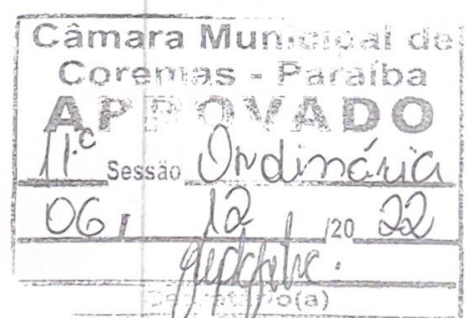 Câmara Municipal de
Coremas - Paraíba
APROVADO
11.ª Sessão Ordinária
06 / 12 /20 22
Secretário(a)